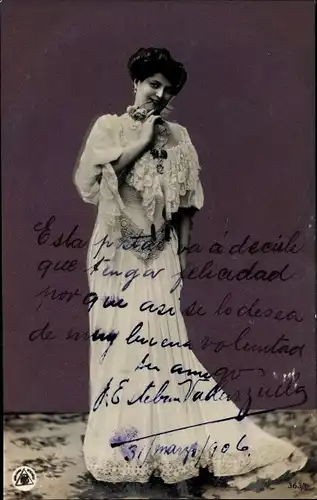 Esta postal va á decirle
que tenga felicidad
porque así se lo desea
de muy buena voluntad
su amigo
J. Esteban Valenzuela
31/marzo/906